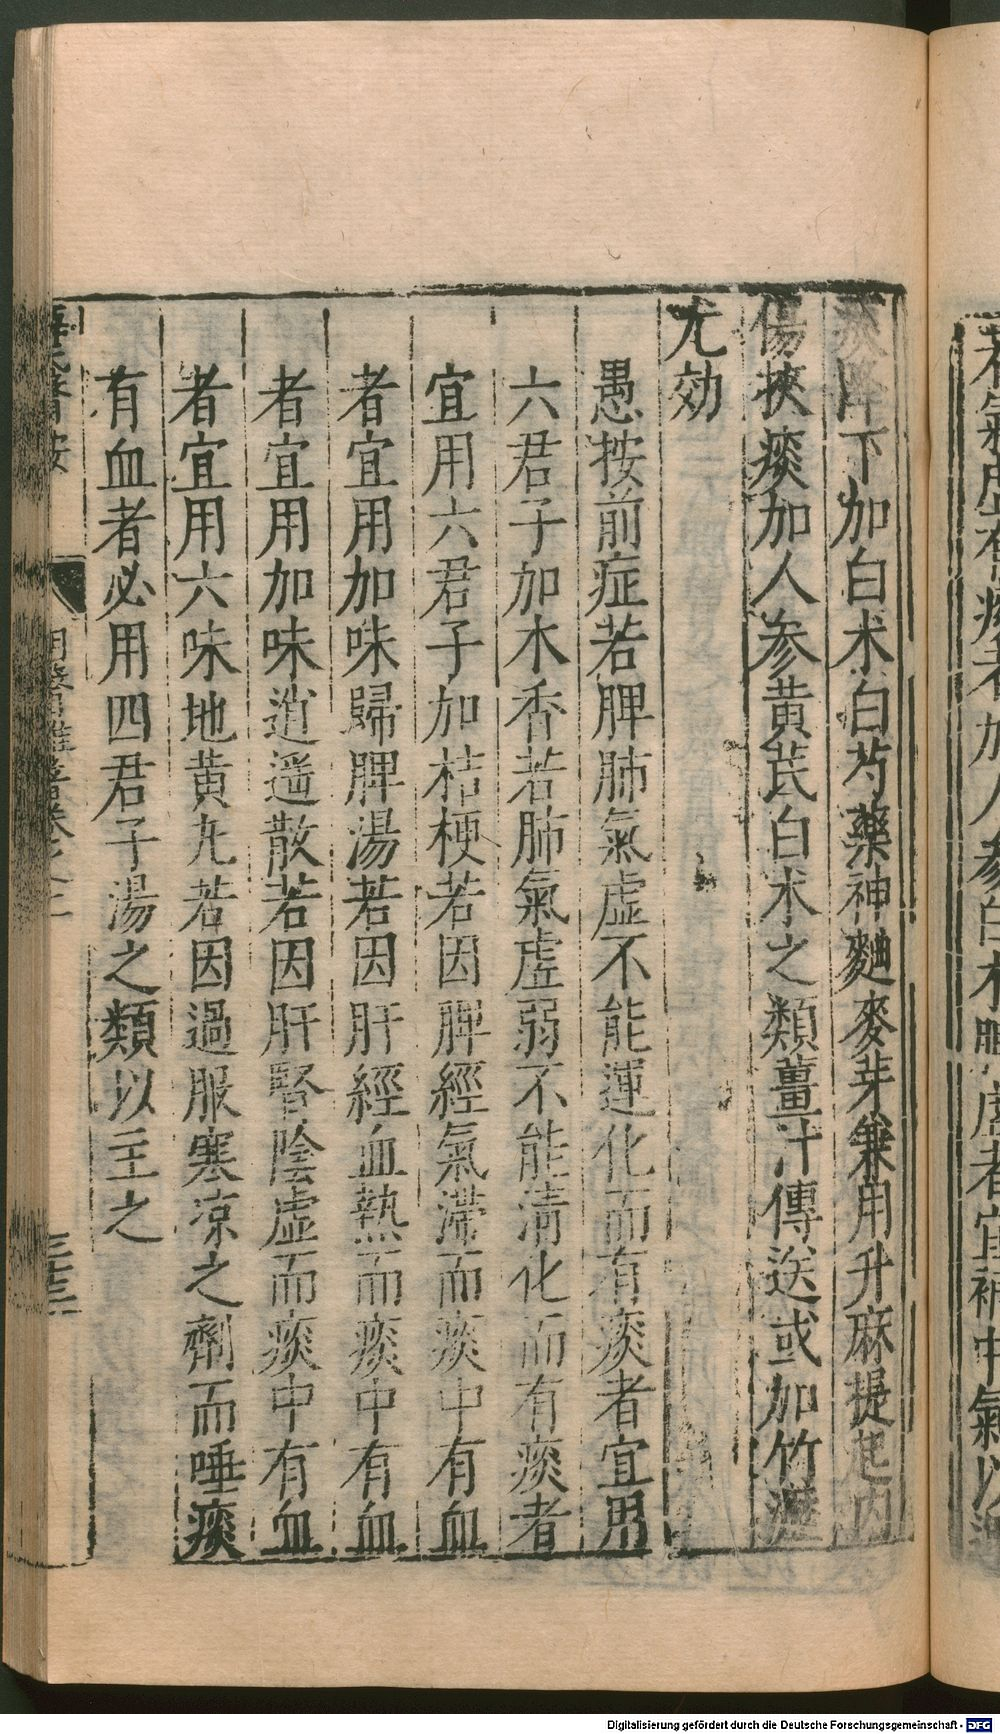 降下加白术白芍藥神麯麥芽兼用升麻提起内
傷挾痰加人参黄芪白术之類薑汁傳送或加竹瀝
尤効
愚按前症若脾肺氣虚不能運化而有痰者宜用
六君子加木香若肺氣虚弱不能清化而有痰者
宜用六君子加桔梗若因脾經氣滯而痰中有血
者宜用加味歸脾湯若因肝經血熱而痰中有血
者宜用加味逍遥散若因肝腎陰虚而痰中有血
者宜用六味地黄丸若因過服寒凉之劑而唾痰
有血者必用四君子湯之類以主之
三十三
Digitalisierung gefördert durch die Deutsche Forschungsgemeinschaft - DFG